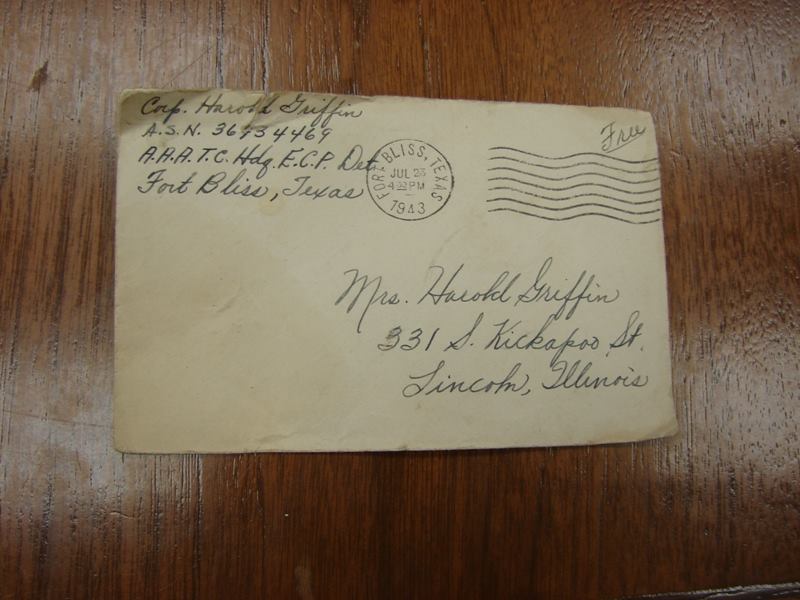 Corp. Harold Griffin
A.S.N. 36734469
A.A.A.T.C. Hdq. E.C.P. Det.
Fort Bliss, Texas
FORT BLISS, TEXAS
JUL 23
4 PM
1943
Free
Mrs. Harold Griffin
331 S. Kickapoo St.
Lincoln, Illinois